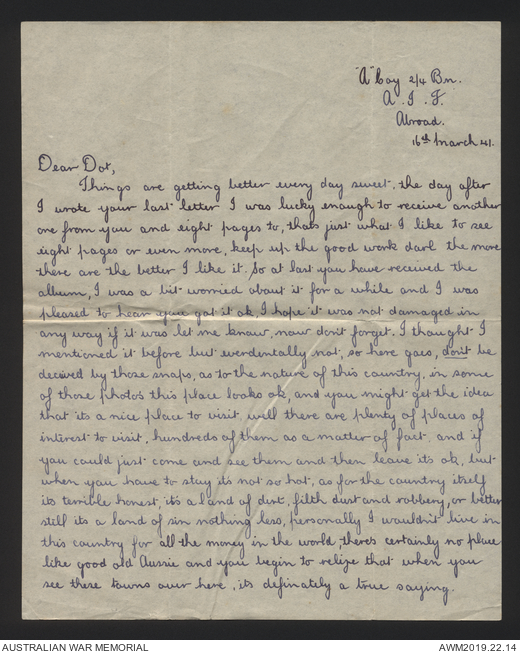 "A" Coy 2/4 Bn.
A. I. F.
Abroad.
16th March 41.
Dear Dot,
Things are getting better every day sweet, the day after
I wrote your last letter I was lucky enough to receive another
one from you and eight pages to, thats just what I like to see
eight pages or even more, keep up the good work darl the more
there are the better I like it. So at last you have received the
album, I was a bit worried about it for a while and I was
pleased to hear you got it ok, I hope it was not damaged in
any way if it was let me know, now don't forget. I thought I
mentioned it before but evidentally not, so here goes, don't be
decived by those snaps, as to the nature of this country, in some
of those photos this place looks ok, and you might get the idea
that its a nice place to visit, well there are plenty of places of
interest to visit, hundreds of them as a matter of fact, and if
you could just come and see them and then leave its ok, but
when you have to stay its not so hot, as for the country itself
its terrible honest, its a land of dirt, filth dust and robbery, or better
still its a land of sin nothing less, personally I wouldn't live in
this country for all the money in the world, there's certainly no place
like good old Aussie and you begin to relize that when you
see these towns over here, its definately a true saying.
AUSTRALIAN WAR MEMORIAL
AWM2019.22.14